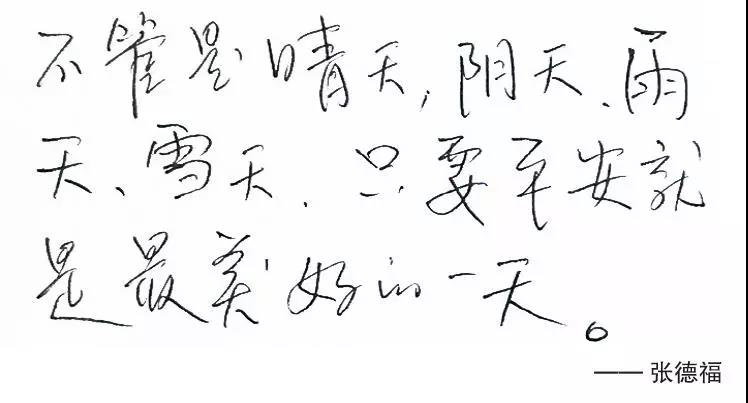 不管是晴天,阴天、雨
天、雪天、只要平安就
是最美好的一天。
—— 张德福